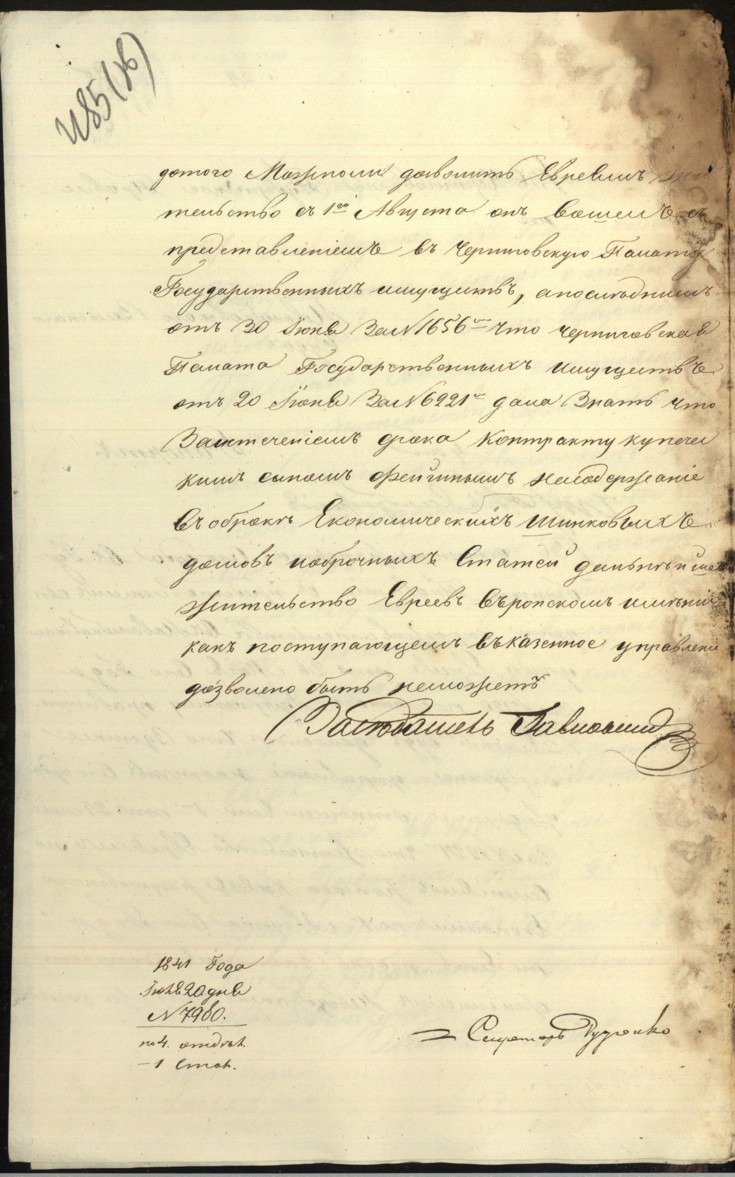 485 (об)
дотого Мазполи дозволить Евреямъ жи
тельство с 1го Августа онъ вошелъ съ
представленіемъ въ Черниговскую Палату
Государственныхъ имуществъ, а последнимъ
отъ 30 Іюня За №1656м что Черниговская
Палата Государственныхъ имуществъ
отъ 20 Іюня За №6921м дала Знать что
Заистеченіемъ срока Контракту купечес
кимъ сыномъ Фейгинымъ насодержаніе
въоброкъ Економическихъ шинковыхъ
домовъ иоброчныхъ Статей дальнѣйшее
жительство Евреевъ въропскомъ имѣніи
какъ поступающемъ въказенное управленіе
дозволено быть неможетъ
Засѣдатель
1841 Года
Іюля 20 дня
№ 7980.
по 4. отдѣл.
– 1 Стол.
Секретарь